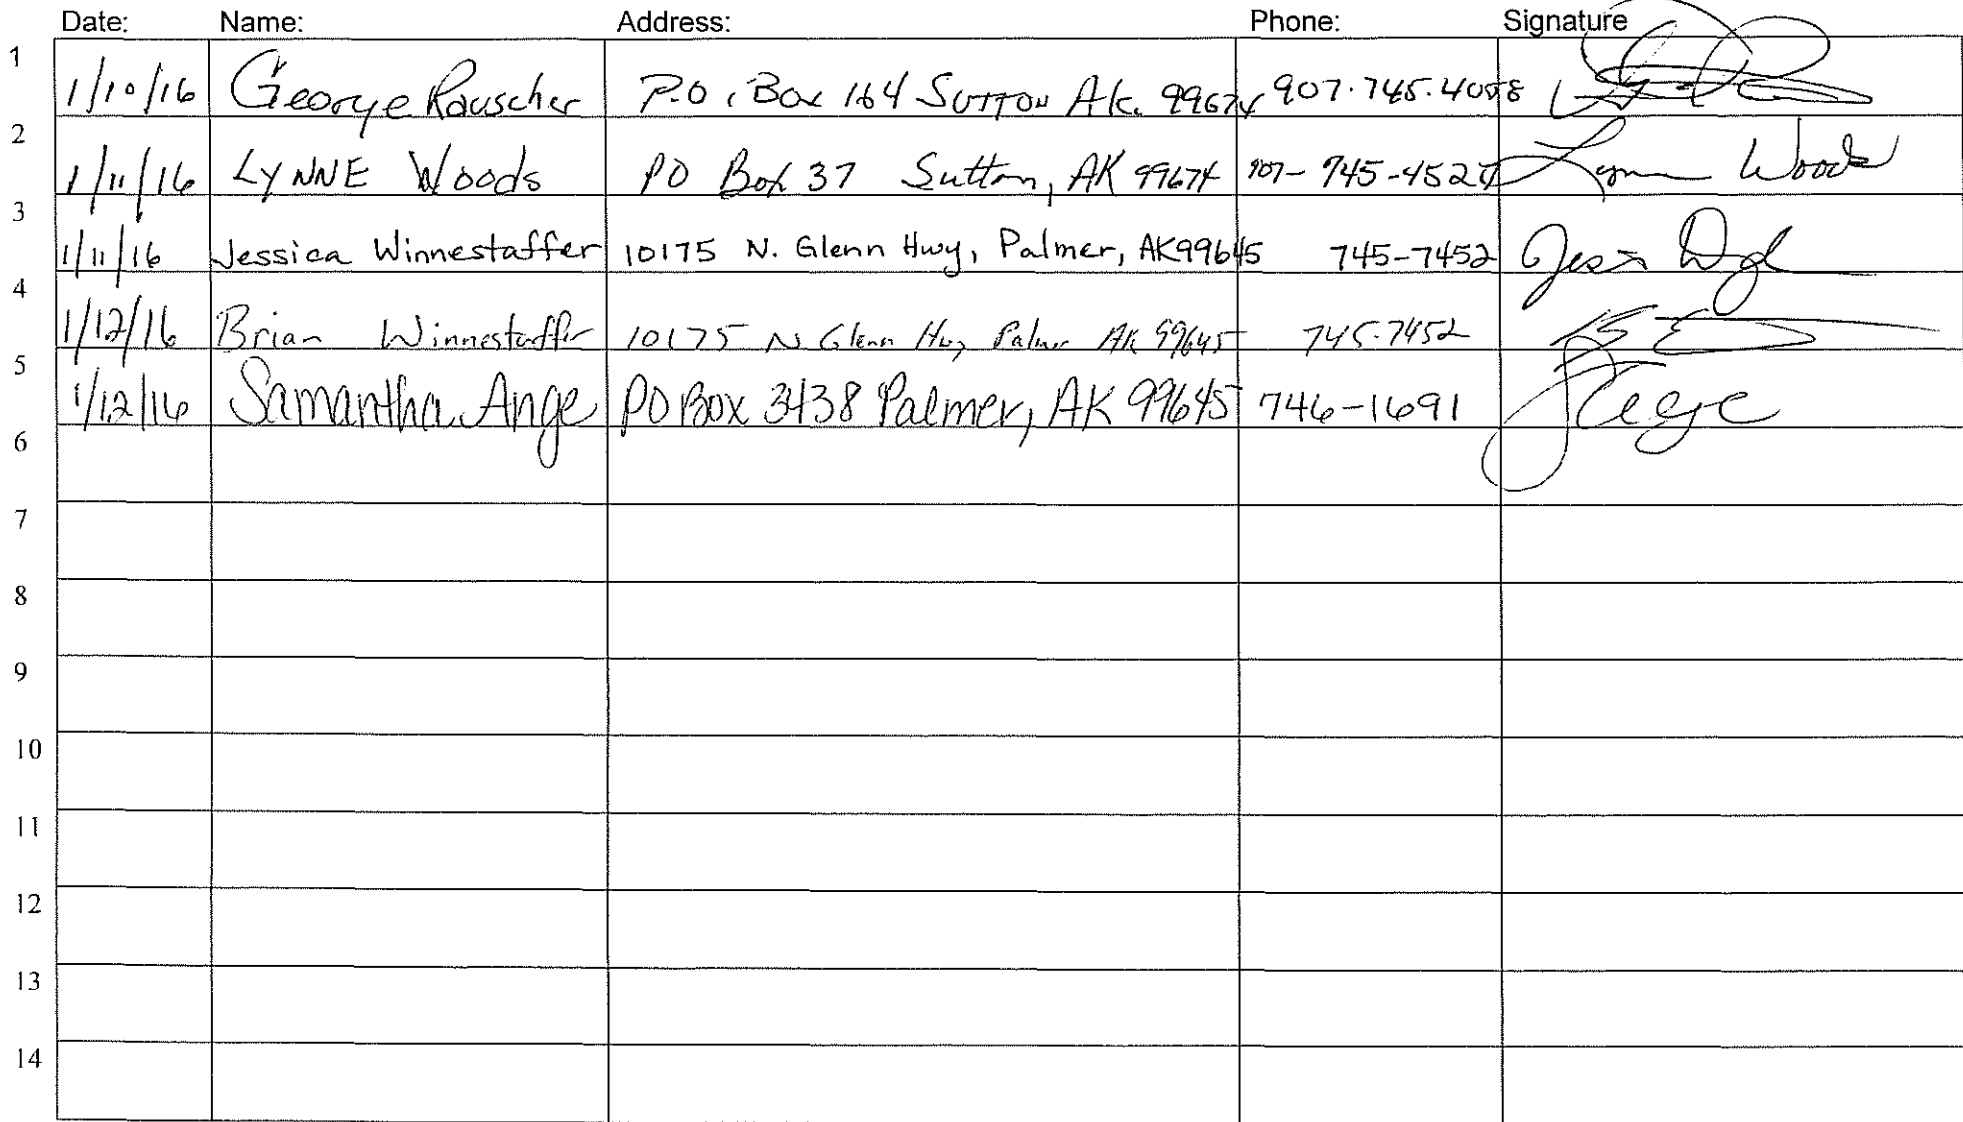 Date: Name: Address: Phone: Signature
1 1/10/16 George Rauscher P.O. Box 164 SUTTON Ak. 99674 907.745.4058
2 1/11/16 LYNNE Woods PO Box 37 Sutton, AK 99674 907-745-4527 Lynne Woods
3 1/11/16 Jessica Winnestaffer 10175 N. Glenn Hwy, Palmer, AK 99645 745-7452
4 1/12/16 Brian Winnestaffer 10175 N Glenn Hwy Palmer AK 99645 745-7452
5 1/12/16 Samantha Ange PO Box 3438 Palmer, AK 99645 746-1691
6
7
8
9
10
11
12
13
14